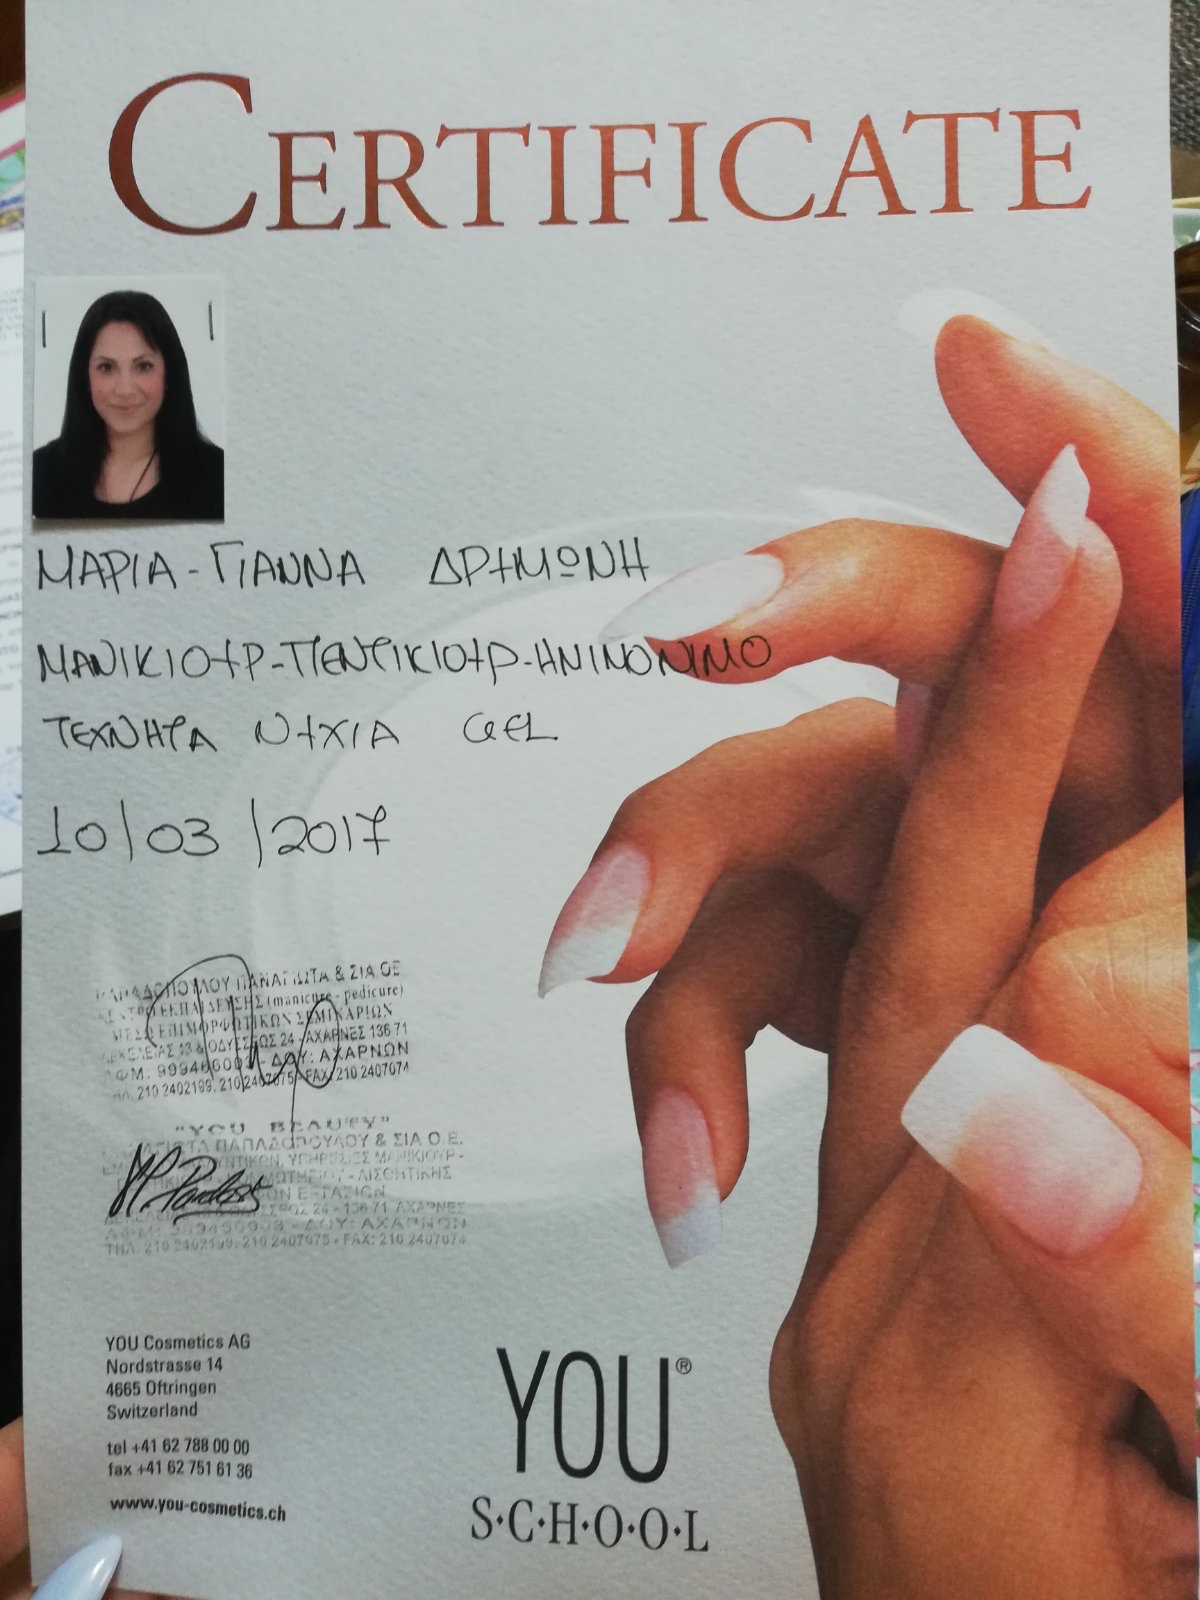 CERTIFICATE
ΜΑΡΙΑ-ΓΙΑΝΝΑ ΔΡΥΜΩΝΗ
ΜΑΝΙΚΙΟΥΡ-ΠΕΝΤΙΚΙΟΥΡ-ΗΜΙΜΟΝΙΜΟ
ΤΕΧΝΗΤΑ ΝΥΧΙΑ GEL
10/03/2017
ΠΑΠΑΔΟΠΟΥΛΟΥ ΠΑΝΑΓΙΩΤΑ & ΣΙΑ ΟΕ
ΚΕΝΤΡΟ ΕΚΠΑΙΔΕΥΣΗΣ (manicure - pedicure)
ΜΕΣΩ ΕΠΙΜΟΡΦΩΤΙΚΩΝ ΣΕΜΙΝΑΡΙΩΝ
ΔΕΚΕΛΕΙΑΣ 13 & ΟΔΥΣΣΕΩΣ 24 - ΑΧΑΡΝΕΣ 136 71
ΑΦΜ: - ΔΟΥ: ΑΧΑΡΝΩΝ
ΤΗΛ. 210 2402199, 210 2407075 - FAX: 210 2407074
"YOU BEAUTY"
ΠΑΠΑΔΟΠΟΥΛΟΥ & ΣΙΑ Ο.Ε.
ΥΠΗΡΕΣΙΕΣ ΜΑΝΙΚΙΟΥΡ -
- ΑΙΣΘΗΤΙΚΗΣ
24 - 136 71 ΑΧΑΡΝΕΣ
- ΔΟΥ: ΑΧΑΡΝΩΝ
ΤΗΛ. 210 2402199, 210 2407075 - FAX: 210 2407074
YOU Cosmetics AG
Nordstrasse 14
4665 Oftringen
Switzerland
tel +41 62 788 00 00
fax +41 62 751 61 36
www.you-cosmetics.ch
YOU®
S·C·H·O·O·L